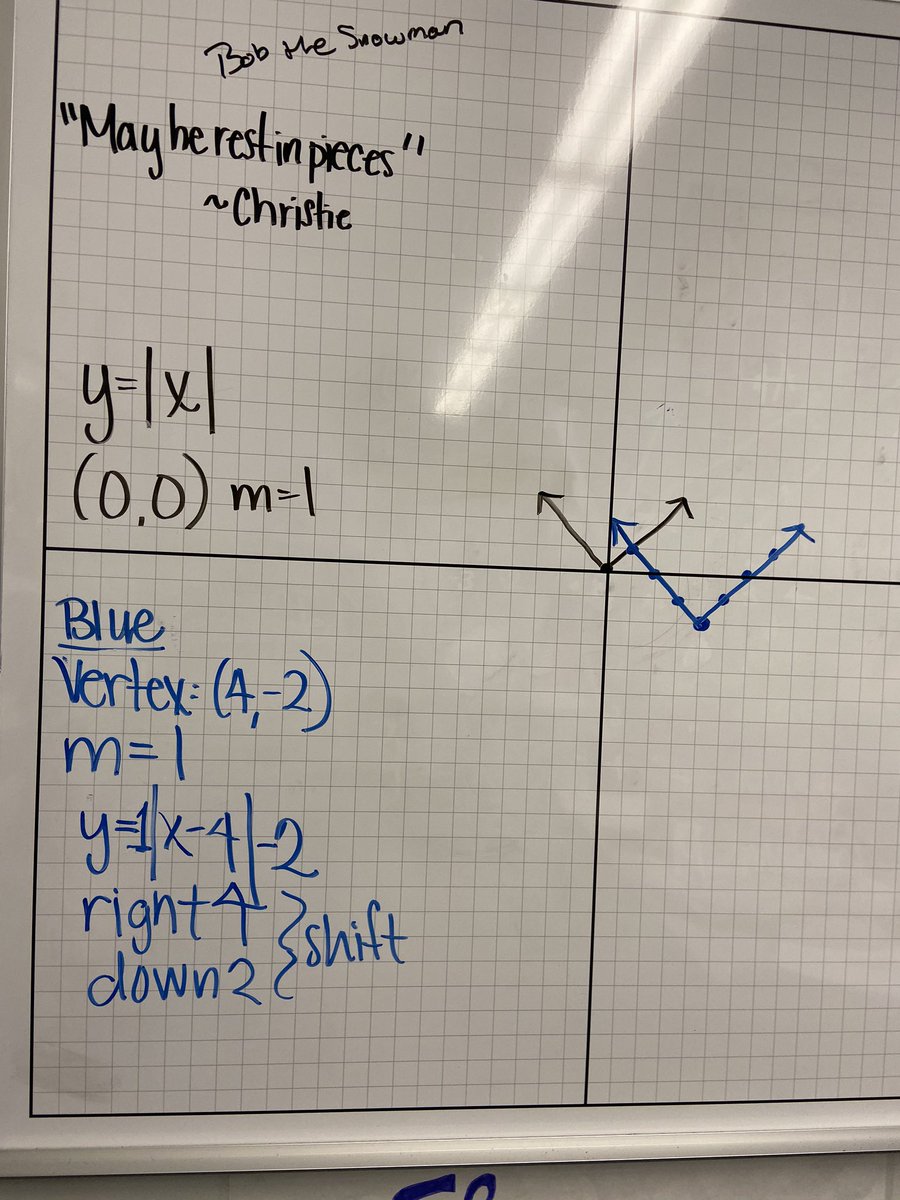 Bob the Snowman
"May he rest in pieces"
~Christie
y=|x|
(0,0) m=1
Blue
Vertex: (4,-2)
m=1
y=1|x-4|-2
right 4
down 2 } shift